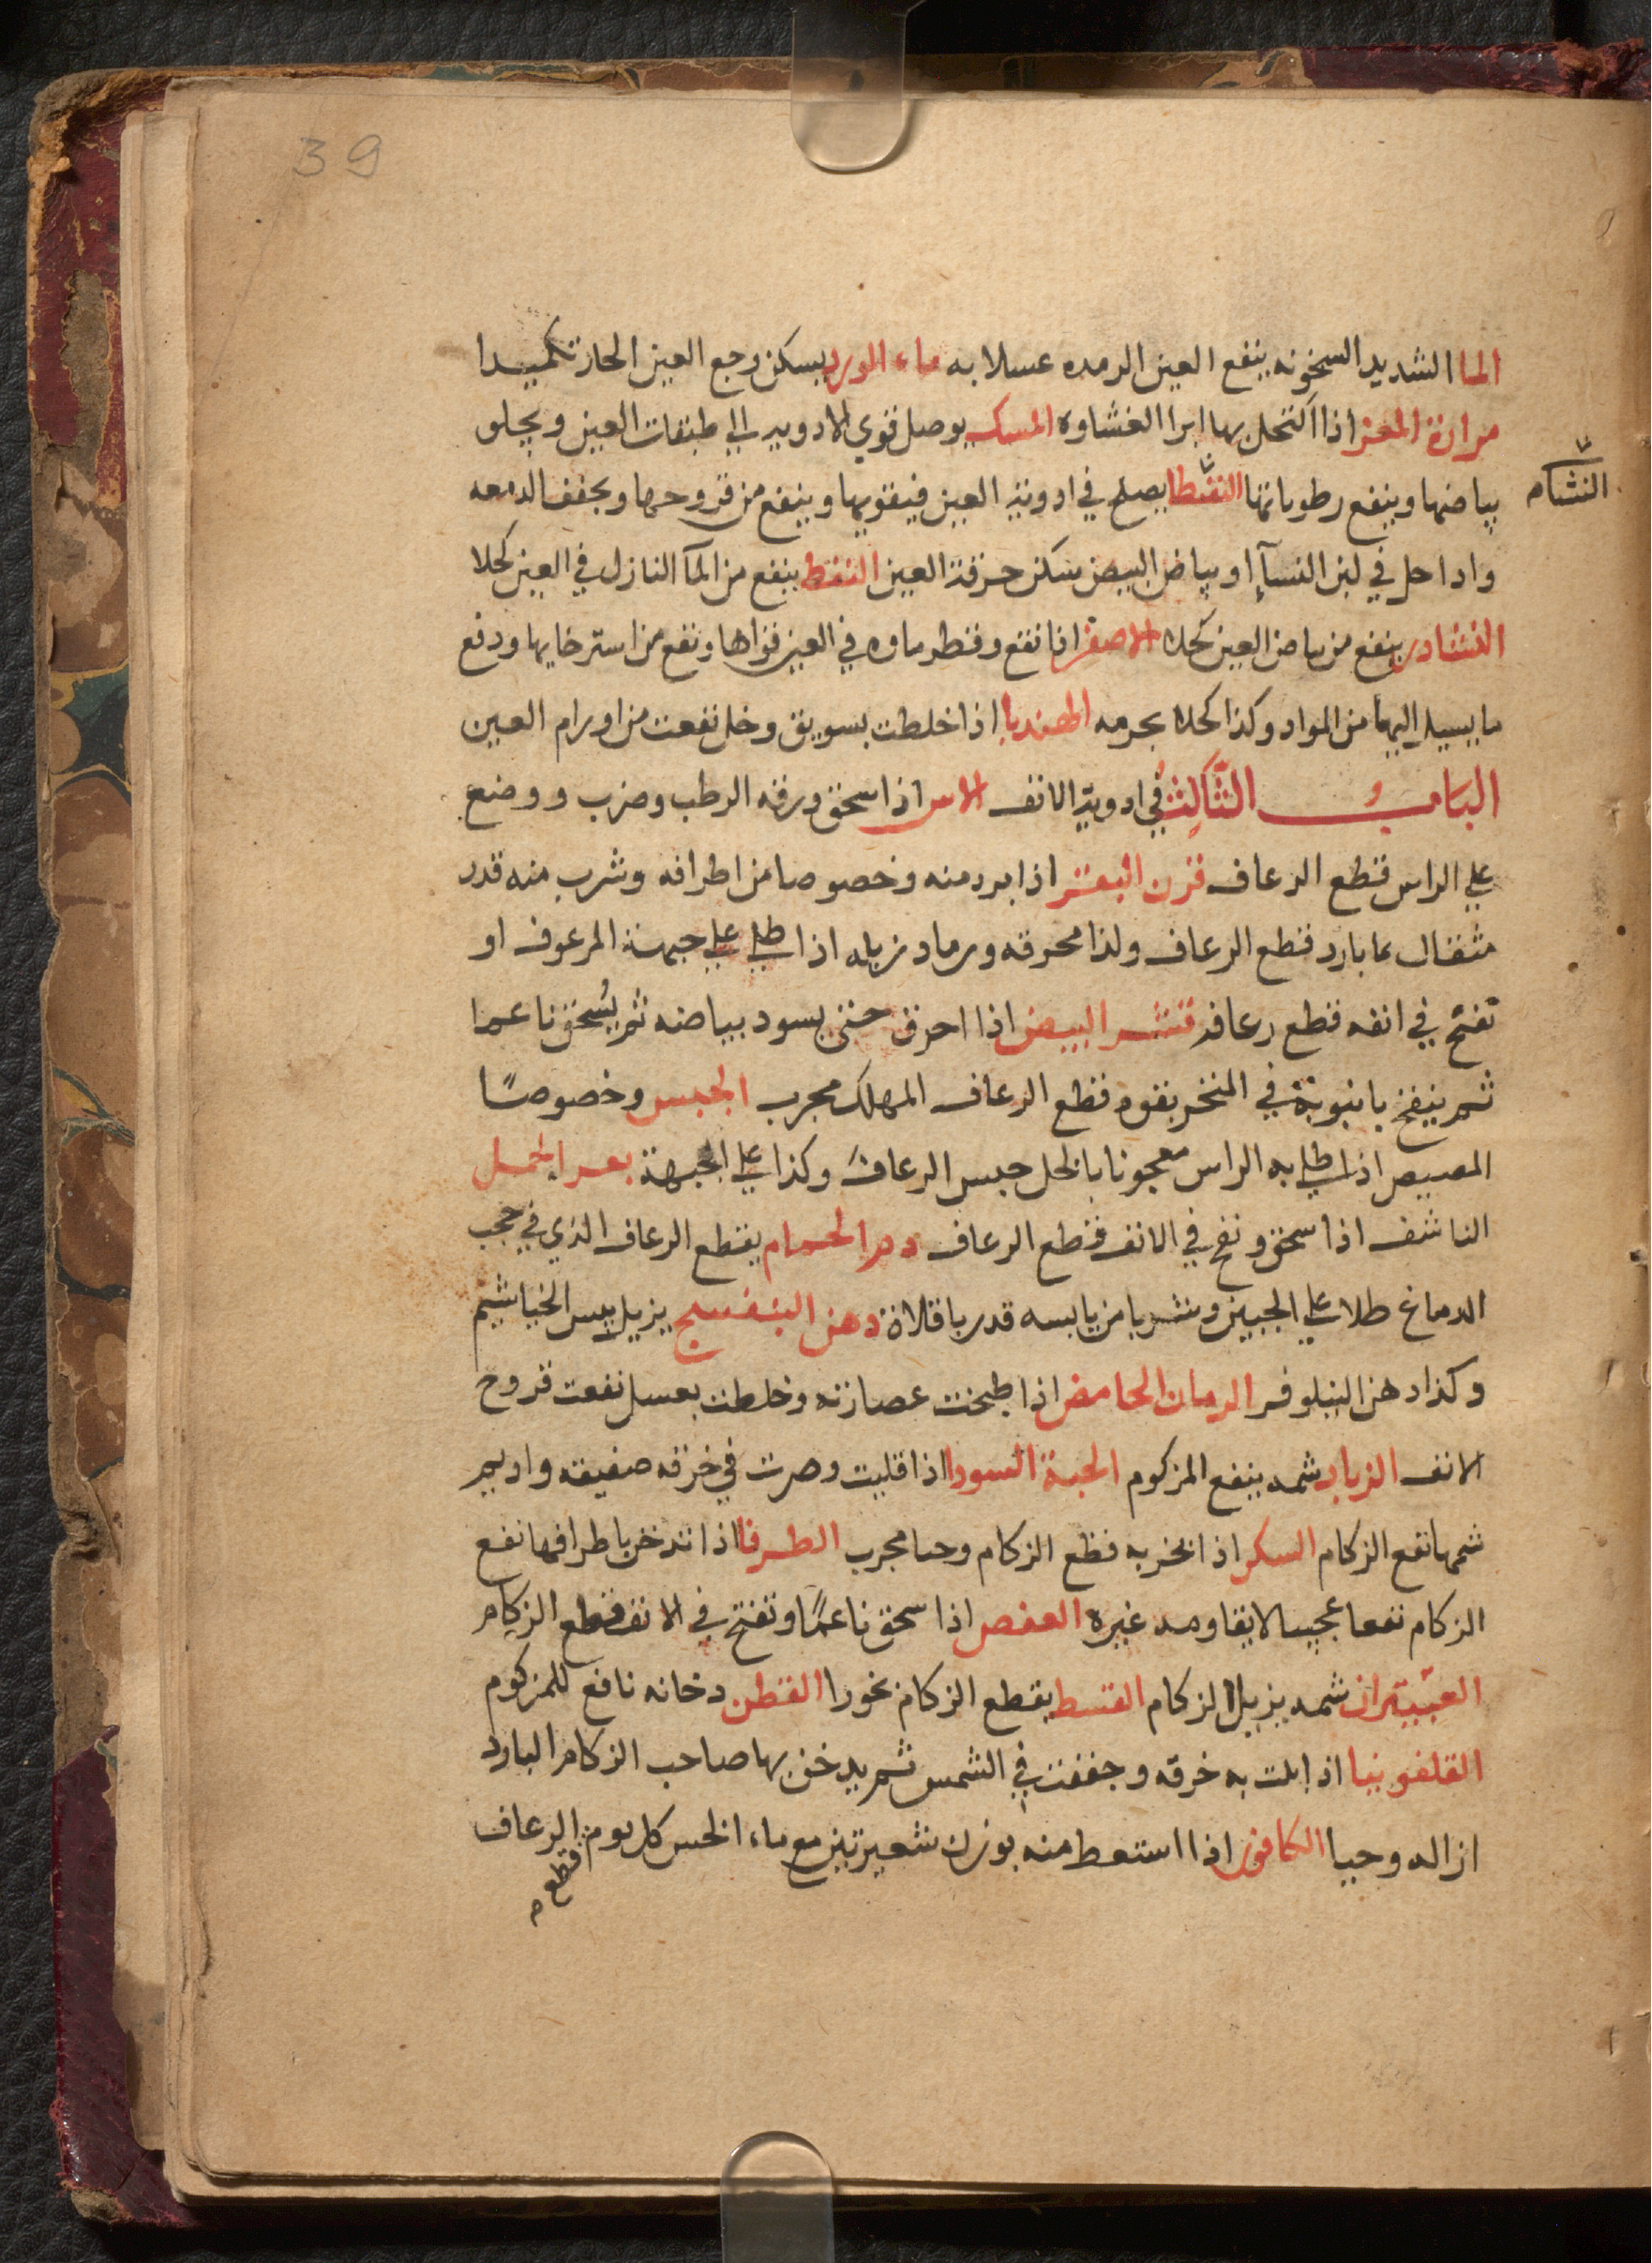 39
الما الشديد السخونه ينفع العين الرمده غسلا به ماء الورد يسكن وجع العين الحار تكميدا
مرارة المعز اذا اكتحل بها ابرا الغشاوه المسك يوصل قوي الادويه الي طبقات العين ويجلو
بياضها وينفع رطوباتها النشا يصلح في ادوية العين فيقويها وينفع من قروحها ويجفف الدمعه
النشام
واذا حل في لبن النسآ او بياض البيض سكن حرقة العين النفط ينفع من المآ النازل في العين كحلا
النشادر ينفع من بياض العين كحلا الاصفر اذا نقع وقطر ماوه في العين قواها ونفع من استرخايها ودفع
ما يسيل اليها من المواد وكذا كحلا بجرمه الهندبا اذا خلطت بسويق وخل نفعت من اورام العين
الباب الثالث في ادوية الانف الاس اذا سحق ورقه الرطب وضرب ووضع
علي الراس قطع الرعاف قرن البقر اذا برد منه وخصوصا من اطرافه وشرب منه قدر
مثقال بما بارد قطع الرعاف ولذا محرقه ورماد زبله اذا طلي علي جبهة المرعوف او
نفخ في انفه قطع رعافه قشر البيض اذا احرق حتي يسود بياضه ثم يُسحق ناعما
ثم ينفخ بانبوبة في المنخر بقوه قطع الرعاف المهلك مجرب الجبس وخصوصًا
المصيص اذا طلي به الراس معجونا بالخل حبس الرعاف وكذا علي الجبهة بعر الجمل
الناشف اذا سحق ونفخ في الانف قطع الرعاف دم الحمام يقطع الرعاف الذي في حجب
الدماغ طلا علي الجبين وشربا من يابسه قدر باقلاة دهن البنفسج يزيل يبس الخياشيم
وكذا دهن النيلوفر الرمان الحامض اذا طبخت عصارته وخلطت بعسل نفعت قروح
الانف الزباد شمه ينفع المزكوم الحبة السودا اذا قليت وصرت في خرقه صفيقه واديم
شمها نفع الزكام السكر اذا بخر به قطع الزكام وحيا مجرب الطرفا اذا تدخن باطرافها نفع
الزكام نفعا عجيبا لا يقاومه غيره العفص اذا سحق ناعمًا ونفخ في الانف قطع الزكام
العبيتران شمه يزيل الزكام القسط يقطع الزكام بخورا القطن دخانه نافع للمزكوم
القلفونيا اذا بلت به خرقه وجففت في الشمس ثم يدخن بها صاحب الزكام البارد
ازاله وحيا الكافور اذا استعط منه بوزن شعيرتين مع ماء الخس كل يوم الرعاف
قطع